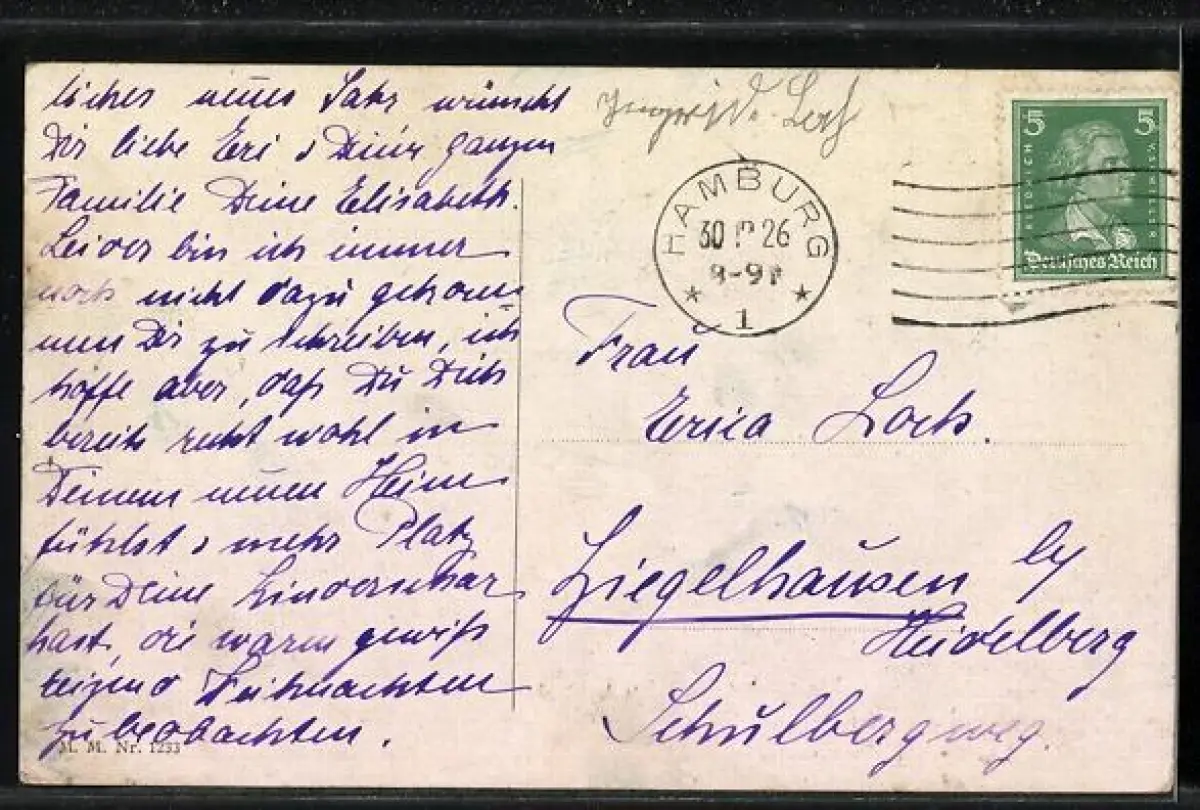 liches neues Jahr wünscht
Dir liebe Eri & Deiner ganzen
Familie Deine Elisabeth.
Leider bin ich immer
noch nicht dazu gekom-
men Dir zu schreiben, ich
hoffe aber, daß Du Dich
bereits recht wohl in
Deinem neuen Heim
fühlst & mehr Platz
für Deine Kinderschar
hast, die waren gewiß
reizend Weihnachten
zu beobachten.
M. M. Nr. 1233
HAMBURG
30 12 26
8-9V
* 1 *
5 5
FRIEDRICH
VON SCHILLER
Deutsches Reich
Frau
Erica Loch.
Ziegelhausen b/
Heidelberg
Schulbergweg.